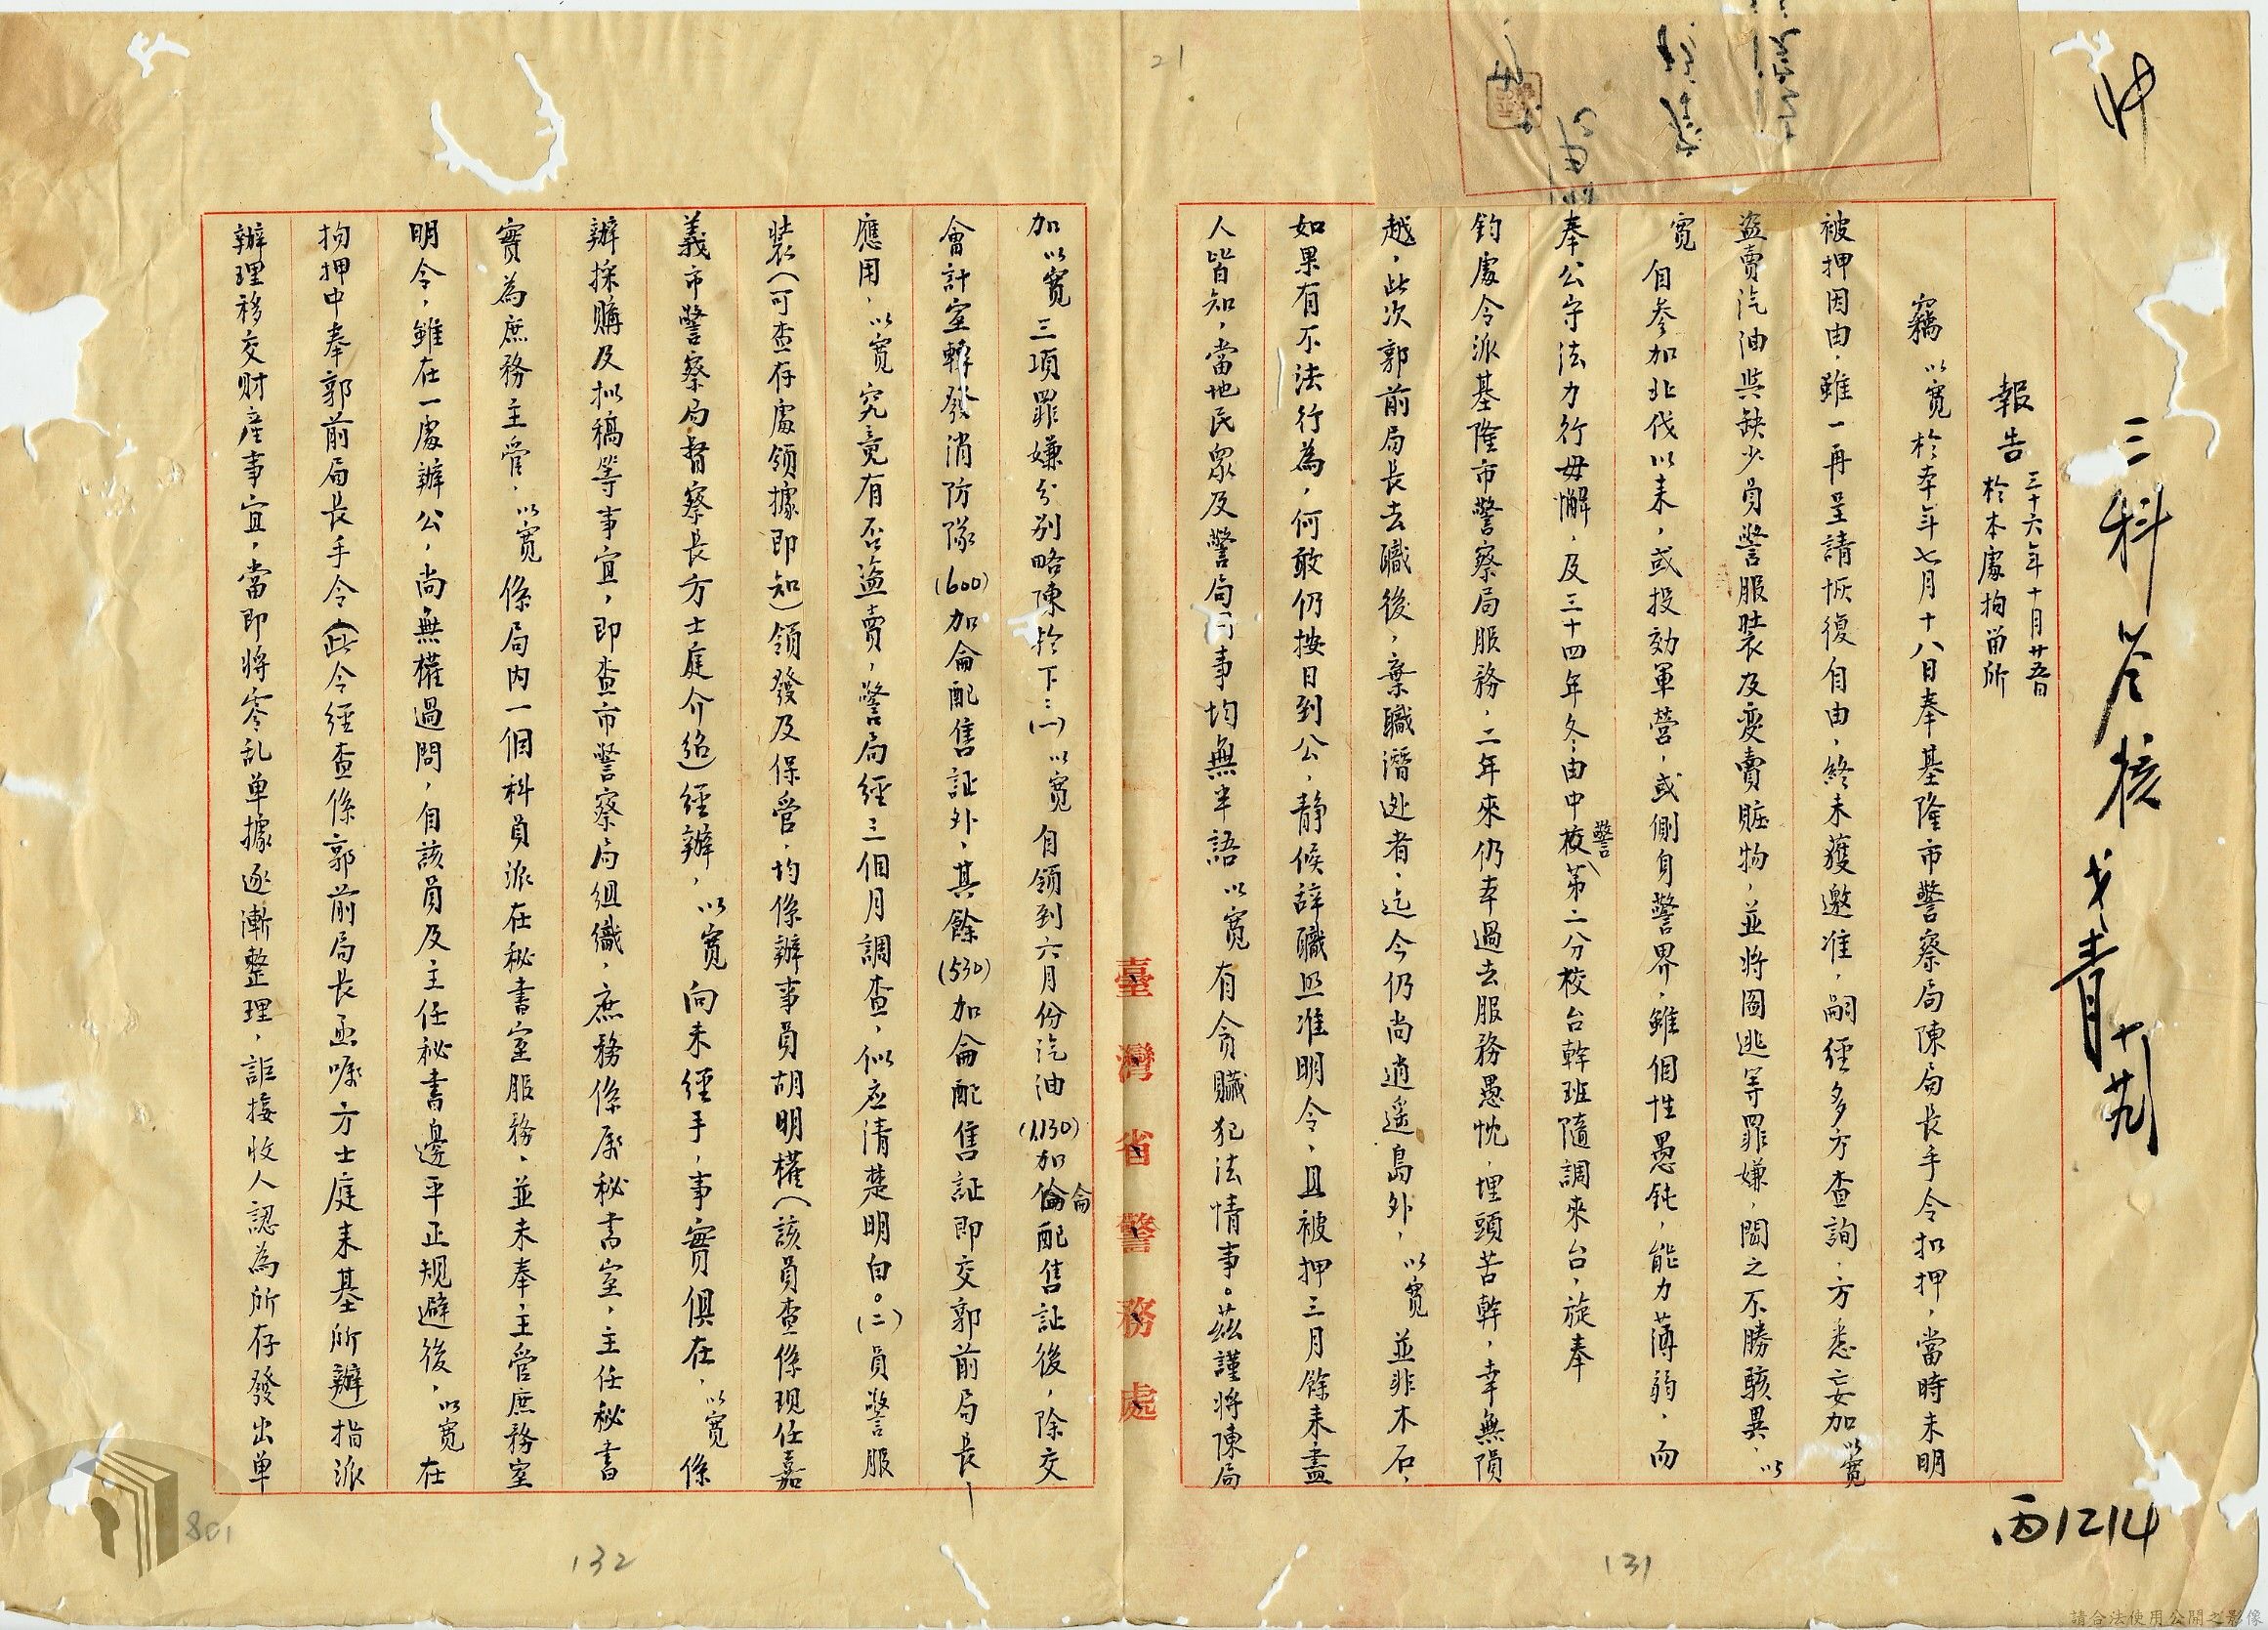 三科簽核
丙1214
報告 三十六年十月廿五日
於本處拘留所
竊以寬於本年七月十八日奉基隆市警察局陳局長手令扣押，當時未明
被押因由，雖一再呈請恢復自由，終未獲邀准，嗣經多方查詢，方悉妄加以寬
盜賣汽油與缺少員警服裝及変賣賍物，並將圖逃等罪嫌，閱之不勝駭異，以
寬自參加北伐以來，或投効軍營，或側身警界，雖個性愚鈍，能力薄弱，而
奉公守法力行毋懈，及三十四年冬由中警校第二分校台幹班隨調來台，旋奉
鈞處令派基隆市警察局服務，二年來仍本過去服務愚忱，埋頭苦幹，幸無隕
越，此次郭前局長去職後，棄職潛逃者，迄今仍尚逍遥島外，以寬並非木石，
如果有不法行為，何敢仍按日到公，靜候辞職照准明令，且被押三月餘来盡
人皆知，當地民眾及警局同事均無半語以寬有貪贓犯法情事。茲謹將陳局
臺灣省警務處
加以寬三項罪嫌分別略陳於下：(一)以寬自領到六月份汽油(1,130)加侖配售証後，除交
會計室轉發消防隊(600)加侖配售証外，其餘(530)加侖配售証即交郭前局長
應用，以寬究竟有否盜賣，警局經三個月調查，似应清楚明白。(二)員警服
裝(可查存處領據即知)領發及保管，均係辦事員胡明權(該員查係現任嘉
義市警察局督察長方士庭介紹)經辦，以寬向未經手，事實俱在，以寬係
辦採購及拟稿等事宜，即查市警察局組織，庶務係屬秘書室，主任秘書
實為庶務主管，以寬係局内一個科員派在秘書室服務，並未奉主管庶務室
明令，雖在一處辦公，尚無權過問，自該員及主任秘書邊平正規避後，以寬在
拘押中奉郭前局長手令(此令經查係郭前局長面囑方士庭来基所辦)指派
辦理移交財産事宜，當即將零乱单據逐漸整理，詎接收人認為所存發出单
131
132
801
21
請合法使用公開之影像